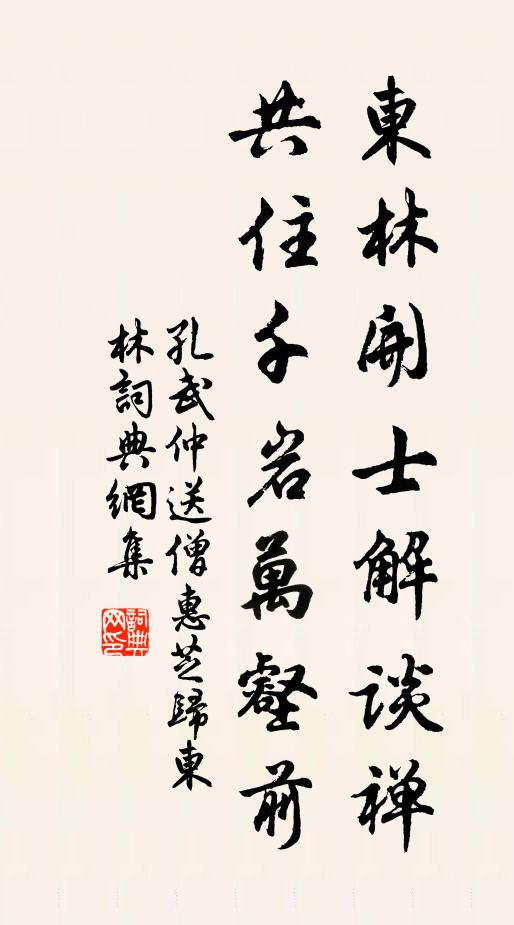 東林開士解談禅
共住千岩萬壑前
孔武仲送僧惠芝歸東
林詞典網集
詞典
网印